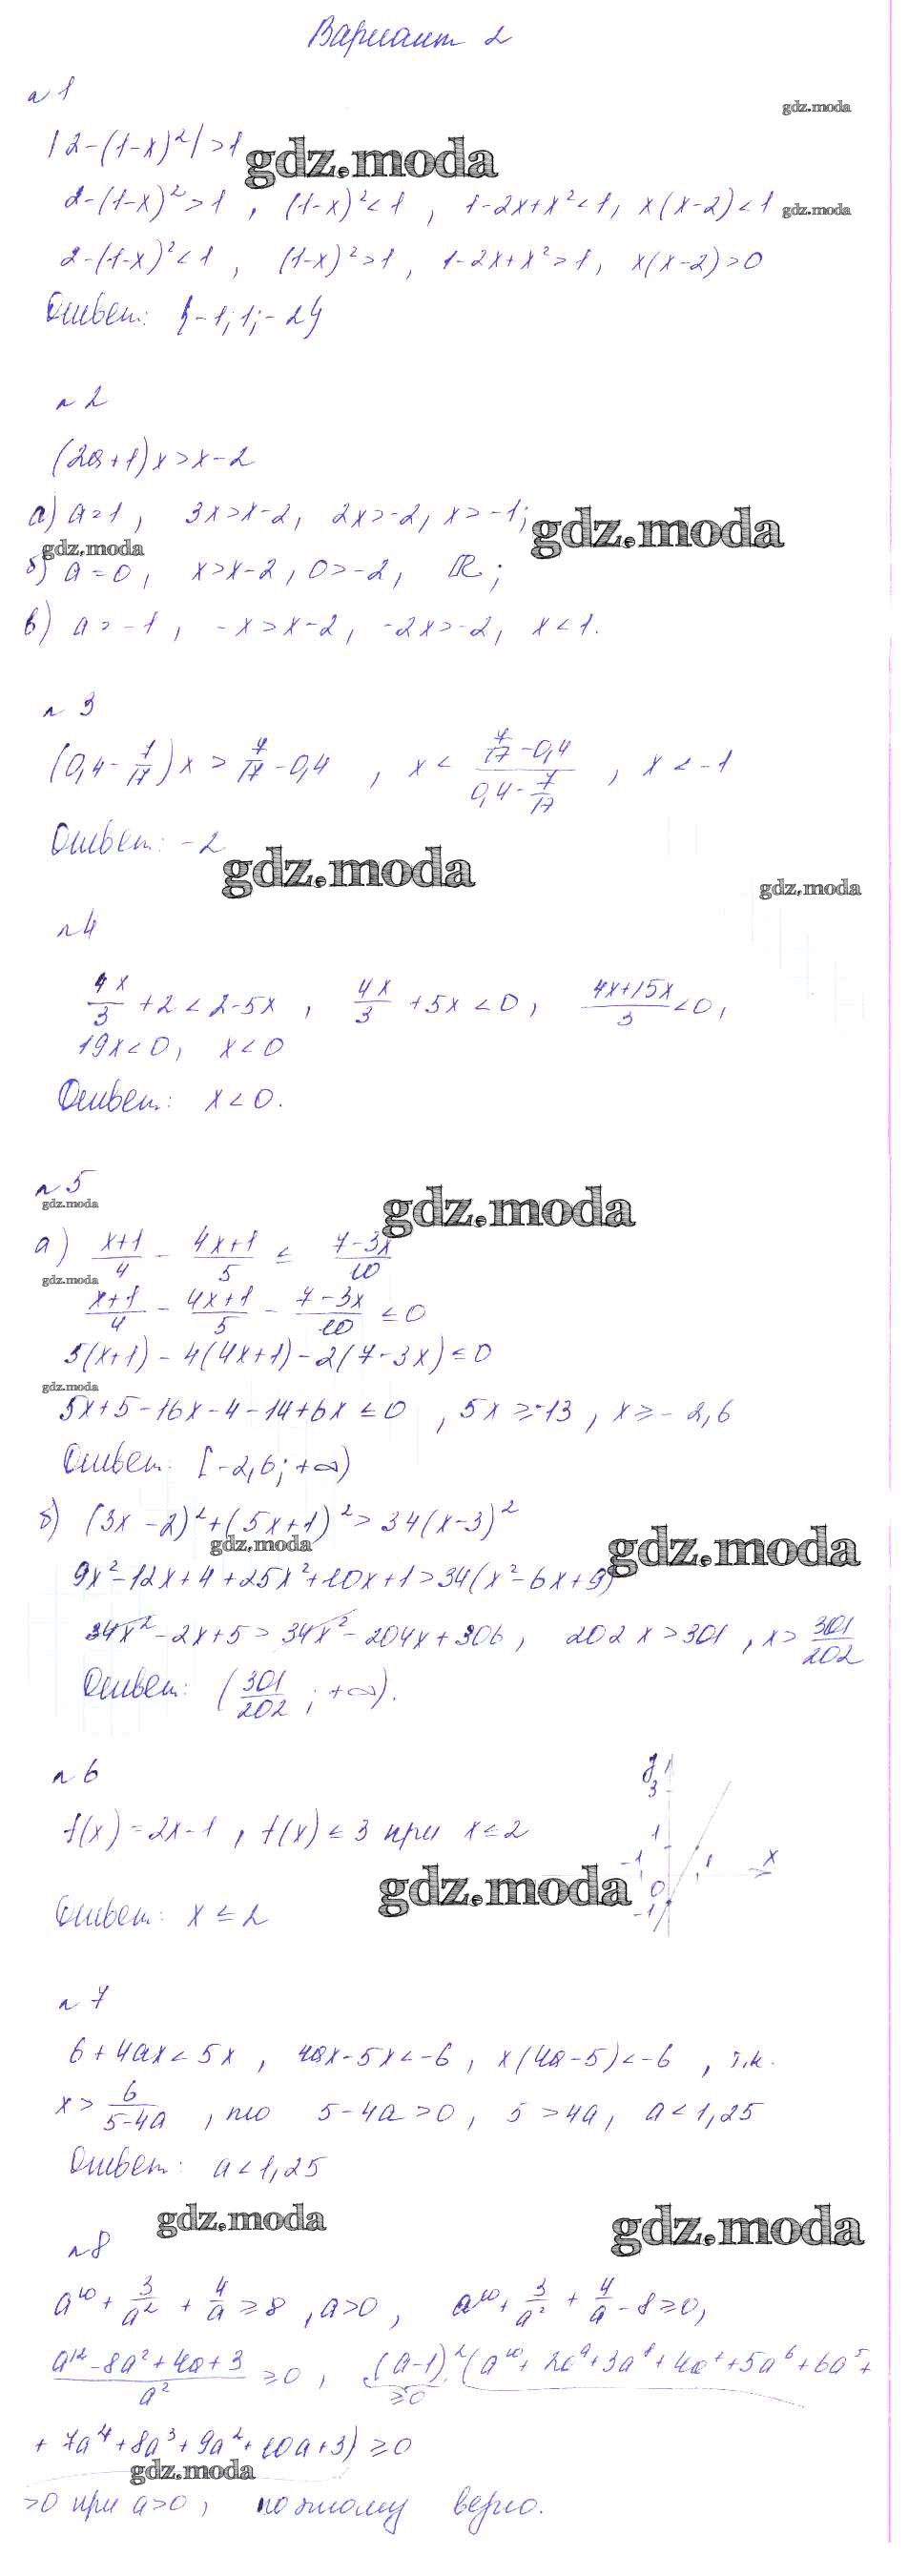 Вариант 2
№1
gdz.moda
|2-(1-x)²|>1
gdz.moda
2-(1-x)²>1, (1-x)²<1, 1-2x+x²<1, x(x-2)<1
gdz.moda
2-(1-x)²<1, (1-x)²>1, 1-2x+x²>1, x(x-2)>0
Ответ: {-1; 1; -2}
№2
(2a+1)x>x-2
а) a=1, 3x>x-2, 2x>-2, x>-1;
gdz.moda
gdz.moda
б) a=0, x>x-2, 0>-2, ℝ;
в) a=-1, -x>x-2, -2x>-2, x<1.
№3
(0,4-7/17)x > 7/17-0,4, x < (7/17-0,4)/(0,4-7/17), x<-1
Ответ: -2
gdz.moda
gdz.moda
№4
4x/3+2<2-5x, 4x/3+5x<0, (4x+15x)/3<0,
19x<0, x<0
Ответ: x<0.
№5
gdz.moda
gdz.moda
а) (x+1)/4 - (4x+1)/5 ≤ (7-3x)/10
gdz.moda
(x+1)/4 - (4x+1)/5 - (7-3x)/10 ≤ 0
5(x+1)-4(4x+1)-2(7-3x)≤0
gdz.moda
5x+5-16x-4-14+6x≤0, 5x≥-13, x≥-2,6
Ответ: [-2,6; +∞)
б) (3x-2)²+(5x+1)²>34(x-3)²
gdz.moda
gdz.moda
9x²-12x+4+25x²+10x+1>34(x²-6x+9)
34x²-2x+5>34x²-204x+306, 202x>301, x>301/202
Ответ: (301/202; +∞).
№6
f(x)=2x-1, f(x)≤3 при x≤2
y
3
1
-1
1
x
0
-1
gdz.moda
Ответ: x≤2
№7
6+4ax<5x, 4ax-5x<-6, x(4a-5)<-6, т.к.
x>6/(5-4a), то 5-4a>0, 5>4a, a<1,25
Ответ: a<1,25
gdz.moda
gdz.moda
№8
a¹⁰+3/a²+4/a≥8, a>0, a¹⁰+3/a²+4/a-8≥0,
(a¹²-8a²+4a+3)/a²≥0, (a-1)²(a¹⁰+2a⁹+3a⁸+4a⁷+5a⁶+6a⁵+
≥0
+7a⁴+8a³+9a²+10a+3)≥0
gdz.moda
>0 при a>0, поэтому верно.